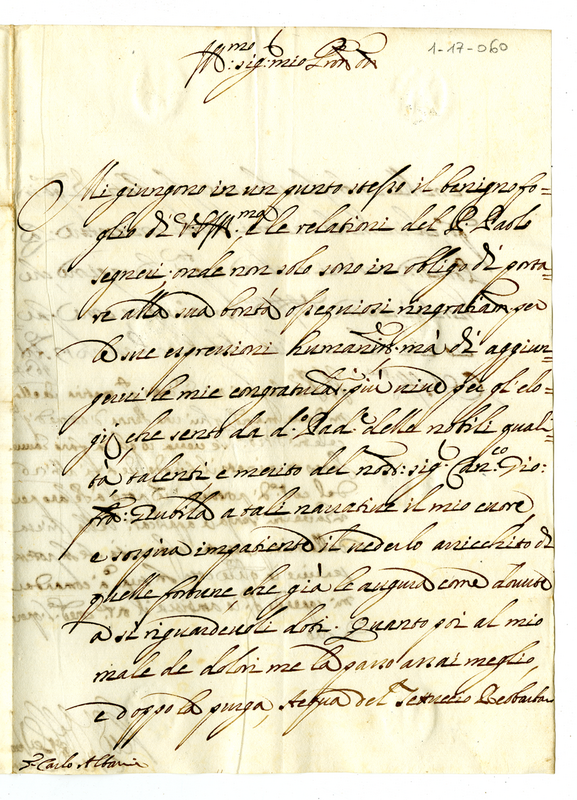 Ill.mo sig: mio P̄ron
1-17-060
Mi giungono in un punto stesso il benigno fo=
glio di V.S. Ill.ma, e le relationi del P. Paolo
segneri, onde non solo sono in obligo di porta=
re alla sua bontà ossequiosi ringratiam. per
le sue espressioni humaniss. mà di aggiun=
gervi le mie congratulat. più vive per gl'elo=
gij che sento da d.o Pad.e delle nobili quali=
tà talenti e merito del nost: sig. Can.co Gio:
fra: Iubila a tali narrative il mio cuore
e sospira impatiente il vederlo arricchito di
quelle fortune che già le augura come dovute
a sì riguardevoli doti. Quanto poi al mio
male de dolori me la passo assai meglio,
e doppo la purga, Acqua del Tettuccio
Carlo Albani